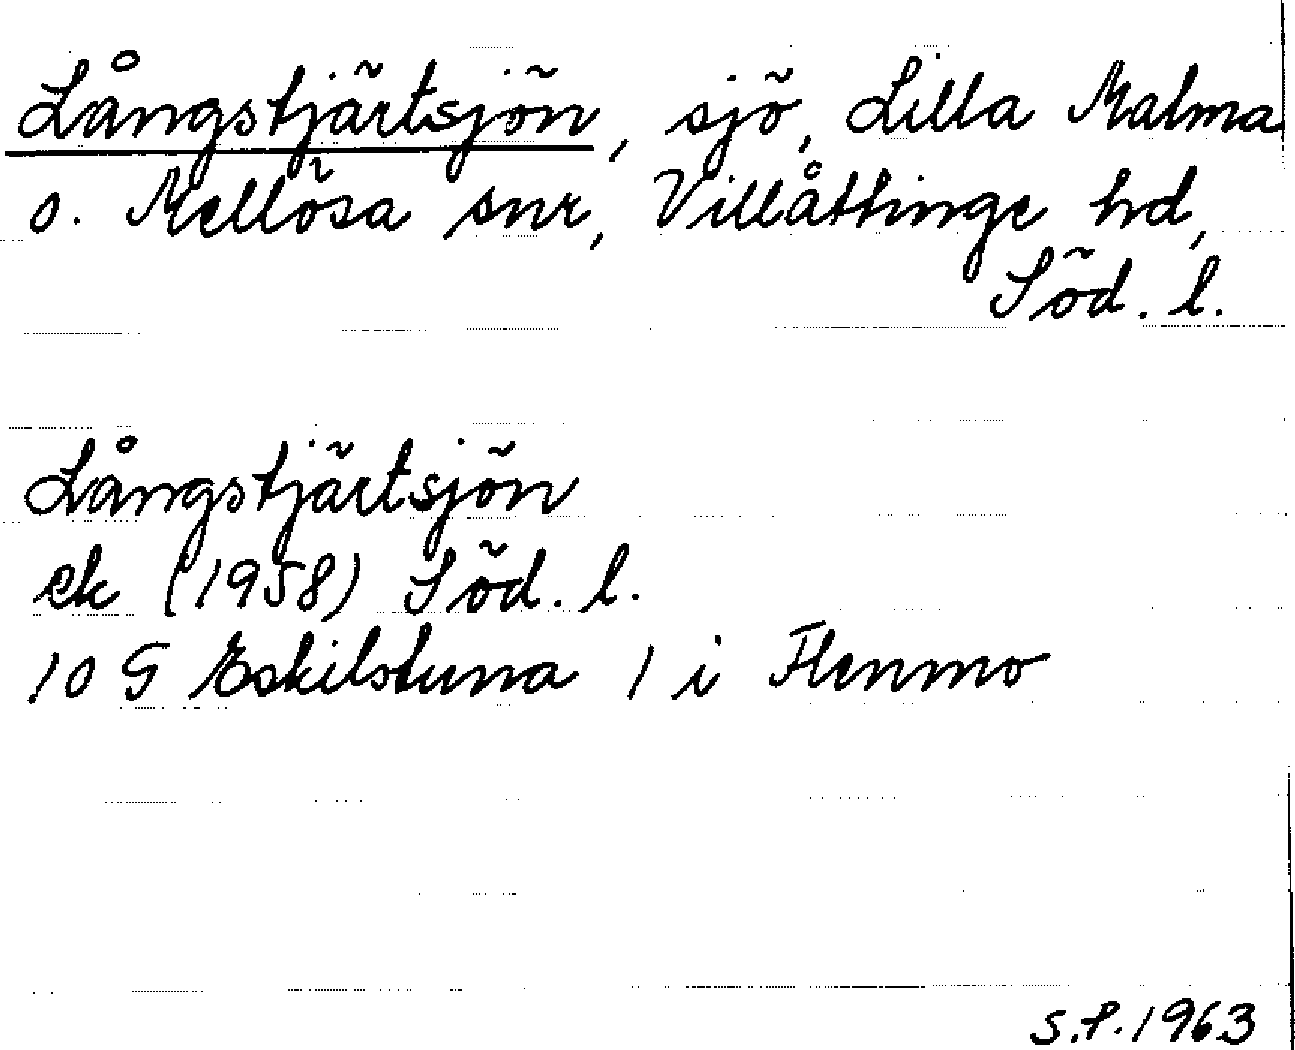 Långstjärtsjön, sjö, Lilla Malma
o. Mellösa snr, Villåttinge hd,
Söd. l.
Långstjärtsjön
ek (1958) Söd. l.
10 G Eskilstuna 1 i Flenmo
S.P. 1963